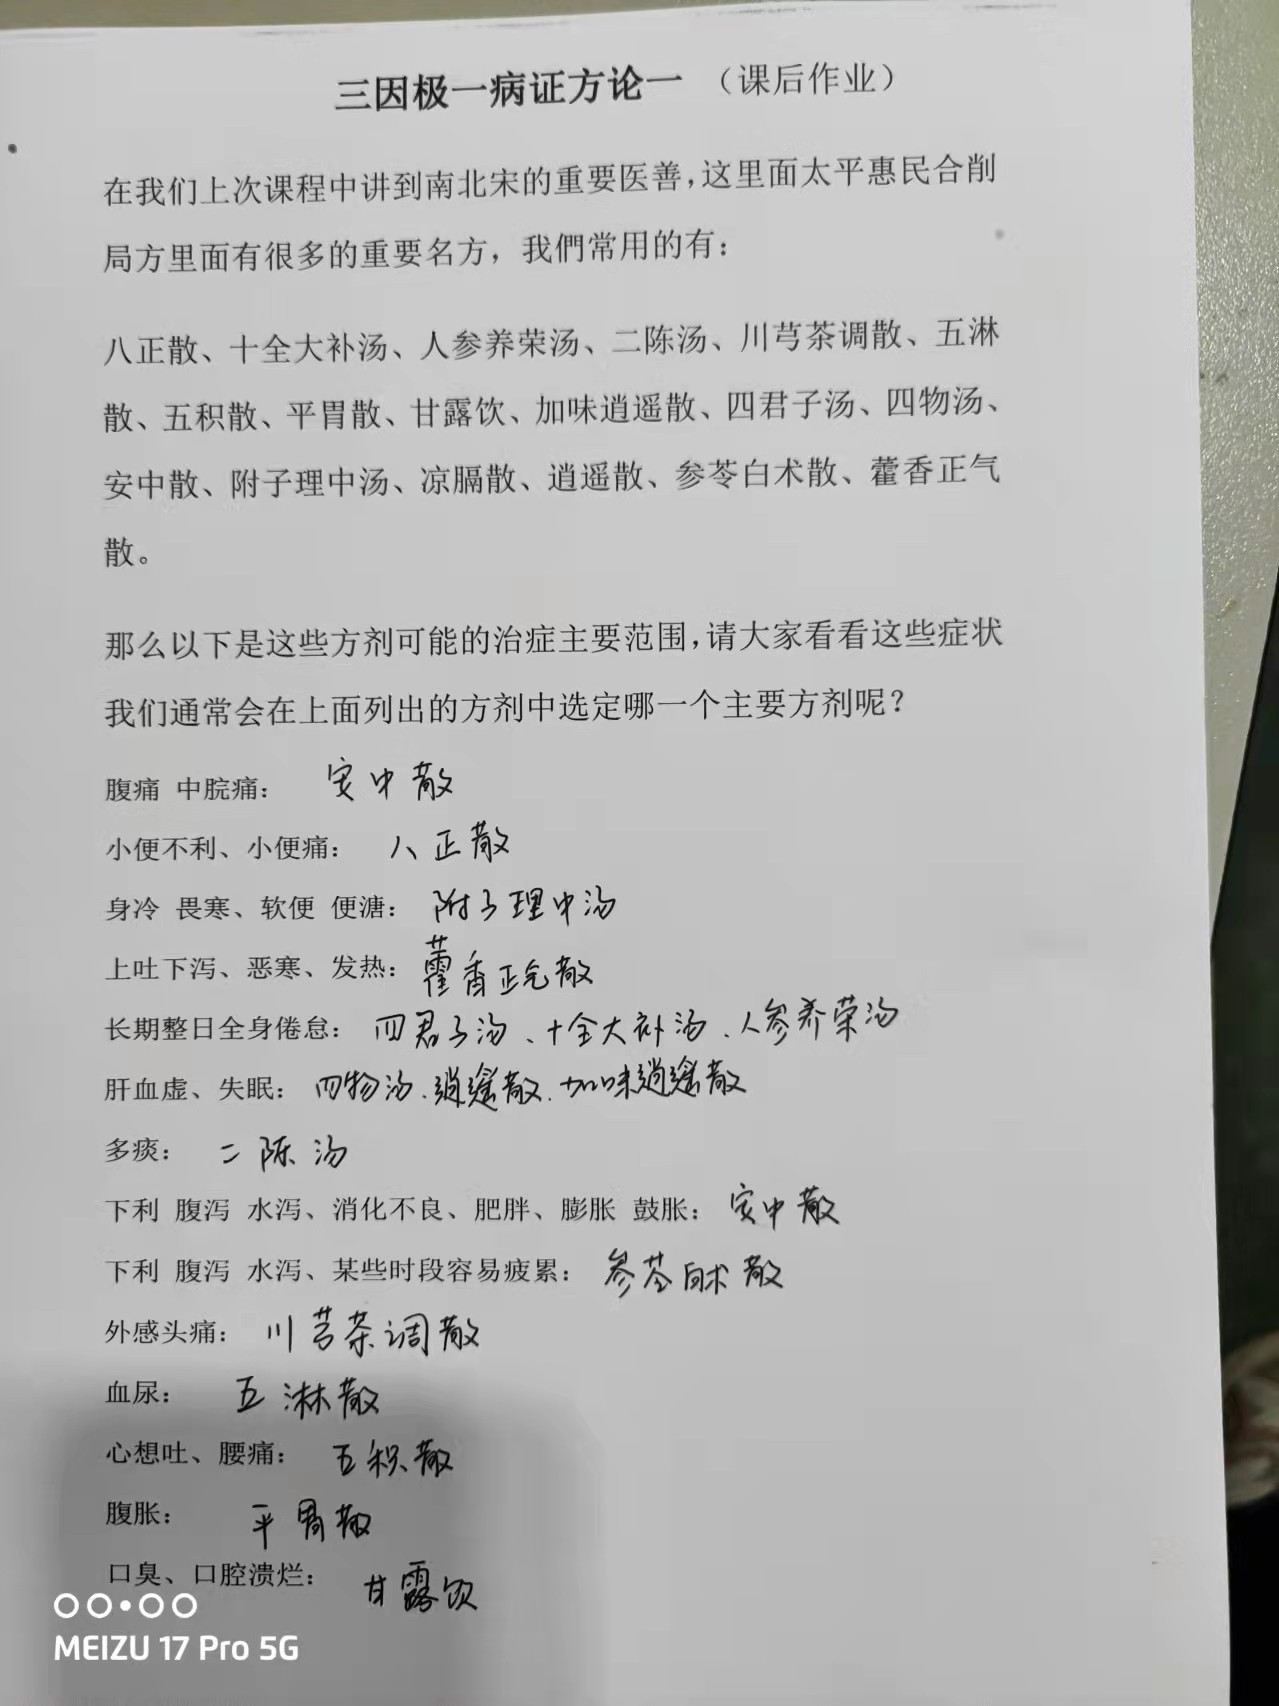 三因极一病证方论一 （课后作业）
在我们上次课程中讲到南北宋的重要医善，这里面太平惠民合削
局方里面有很多的重要名方，我們常用的有：
八正散、十全大补汤、人参养荣汤、二陈汤、川芎茶调散、五淋
散、五积散、平胃散、甘露饮、加味逍遥散、四君子汤、四物汤、
安中散、附子理中汤、凉膈散、逍遥散、参苓白术散、藿香正气
散。
那么以下是这些方剂可能的治症主要范围，请大家看看这些症状
我们通常会在上面列出的方剂中选定哪一个主要方剂呢？
腹痛 中脘痛： 安中散
小便不利、小便痛： 八正散
身冷 畏寒、软便 便溏： 附子理中汤
上吐下泻、恶寒、发热： 藿香正气散
长期整日全身倦怠： 四君子汤、十全大补汤、人参养荣汤
肝血虚、失眠： 四物汤、逍遥散、加味逍遥散
多痰： 二陈汤
下利 腹泻 水泻、消化不良、肥胖、膨胀 鼓胀： 安中散
下利 腹泻 水泻、某些时段容易疲累： 参苓白术散
外感头痛： 川芎茶调散
血尿： 五淋散
心想吐、腰痛： 五积散
腹胀： 平胃散
口臭、口腔溃烂： 甘露饮
MEIZU 17 Pro 5G